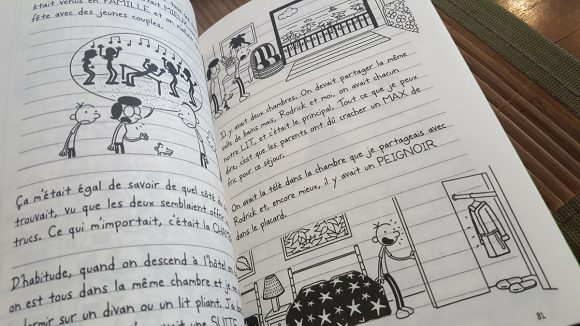 était venus en FAMILLE et on
fête avec des jeunes couples.
Ça m'était égal de savoir de quel côté
trouvait, vu que les deux semblaient
trucs. Ce qui m'importait, c'était la
D'habitude, quand on descend à l'hôtel,
on est tous dans la même chambre et je
dormir sur un divan ou un lit pliant. J'ai
avait une SUITE
Il y avait deux chambres. On devait partager la même
salle de bains mais, Rodrick et moi, on avait chacun
notre LIT, et c'était le principal. Tout ce que je peux
dire, c'est que les parents ont dû cracher un MAX de
fric pour ce séjour.
On avait la télé dans la chambre que je partageais avec
Rodrick et, encore mieux, il y avait un PEIGNOIR
dans le placard.
81